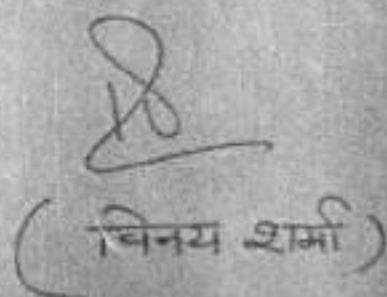 ( विनय शर्मा )